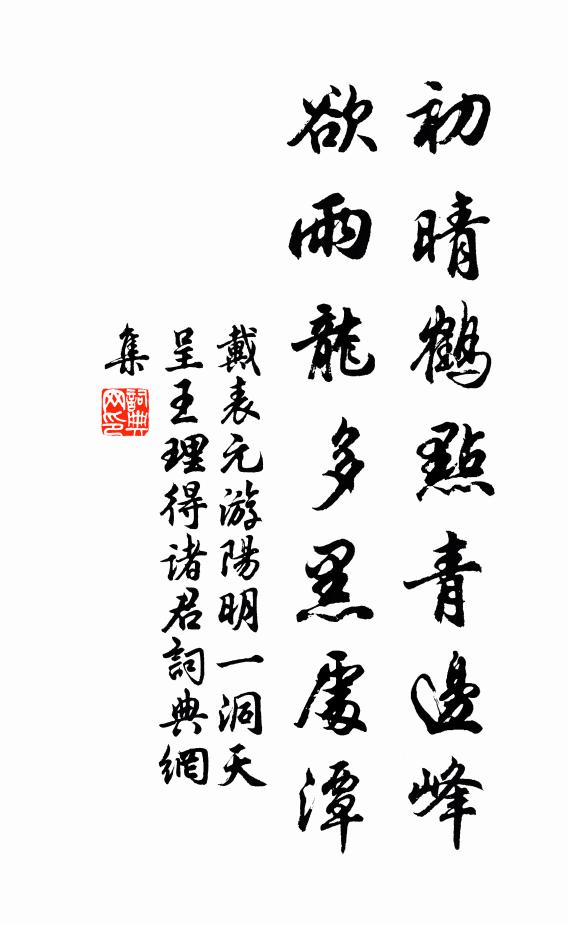 初晴鶴點青邊峰
欲雨龍多黑處潭
戴表元游陽明一洞天
呈王理得諸君詞典網
集
詞典
网印